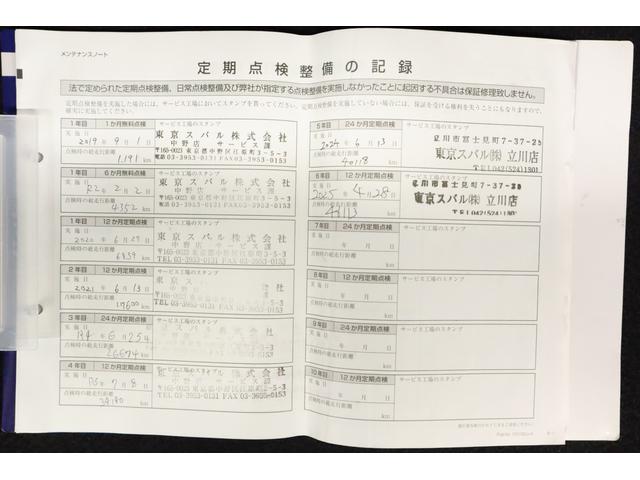 メンテナンスノート
定期点検整備の記録
法で定められた定期点検整備、日常点検整備及び弊社が指定する点検整備を実施しなかったことに起因する不具合は保証修理致しません。
定期点検整備を実施した場合には、サービス工場においてスタンプを貰ってください。定期点検整備を実施していない場合には、保証を受ける権利を失うことにもなりますので、
確実に実施してください。
1年目 1か月無料点検 サービス工場のスタンプ
実施日
2019年9月1日
点検時の総走行距離
1,191 km
東京スバル株式会社
中野店 サービス課
〒165-0023 東京都中野区江原町3-5-3
電話 03-3953-0131 FAX 03-3953-0153
1年目 6か月無料点検 サービス工場のスタンプ
実施日
R2年2月2日
点検時の総走行距離
4352 km
東京スバル株式会社
中野店 サービス課
〒165-0023 東京都中野区江原町3-5-3
TEL 03-3953-0131 FAX 03-3953-0153
1年目 12か月定期点検 サービス工場のスタンプ
実施日
2020年6月29日
点検時の総走行距離
6839 km
東京スバル株式会社
中野店 サービス課
〒165-0023 東京都中野区江原町3-5-3
TEL 03-3953-0131 FAX 03-3953-0153
2年目 12か月定期点検 サービス工場のスタンプ
実施日
2021年6月13日
点検時の総走行距離
17600 km
3年目 24か月定期点検 サービス工場のスタンプ
実施日
R4年6月25日
点検時の総走行距離
26674 km
東京スバル株式会社
中野店 サービス課
〒165-0023 東京都中野区江原町3-5-3
TEL 03-3953-0131 FAX 03-3953-0153
4年目 12か月定期点検 サービス工場のスタンプ
実施日
R5年7月8日
点検時の総走行距離
km
東京スバル株式会社
中野店 サービス課
〒165-0023 東京都中野区江原町3-5-3
TEL 03-3953-0131 FAX 03-3953-0153
5年目 24か月定期点検 サービス工場のスタンプ
実施日
2024年6月13日
点検時の総走行距離
40118 km
立川市富士見町7-37-23
東京スバル㈱ 立川店
TEL 042(524)1901
6年目 12か月定期点検 サービス工場のスタンプ
実施日
2025年4月28日
点検時の総走行距離
43113 km
立川市富士見町7-37-23
東京スバル㈱ 立川店
TEL 042(524)1901
7年目 24か月定期点検 サービス工場のスタンプ
実施日
年 月 日
点検時の総走行距離
km
8年目 12か月定期点検 サービス工場のスタンプ
実施日
年 月 日
点検時の総走行距離
km
9年目 24か月定期点検 サービス工場のスタンプ
実施日
年 月 日
点検時の総走行距離
km
10年目 12か月定期点検 サービス工場のスタンプ
実施日
年 月 日
点検時の総走行距離
km